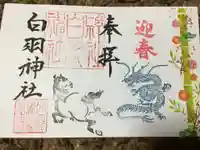 迎春
奉拝
白羽神社